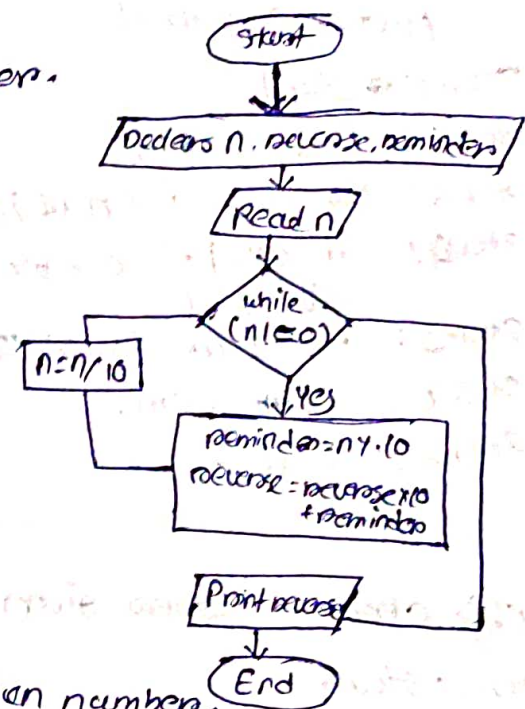 er.
Start
Declare n, reverse, reminder
Read n
while
(n!=0)
n=n/10
Yes
reminder=n%10
reverse=reverse*10
+reminder
Print reverse
End
an number.